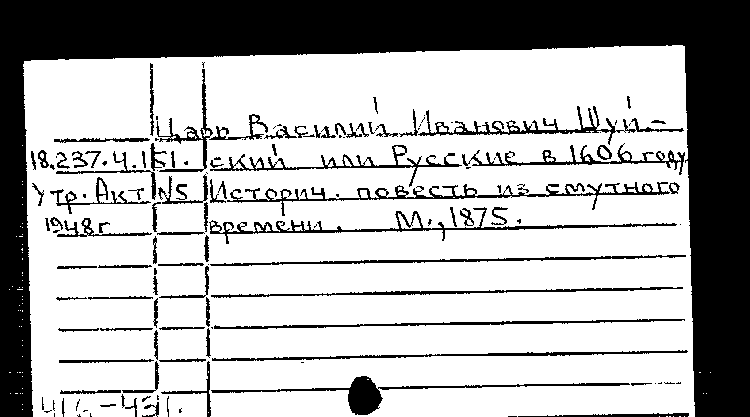 Царь Василий Иванович Шуй-
18.237.4.151. ский или Русские в 1606 году
Утр. Акт №5 Историч. повесть из смутного
1948г времени. М., 1875.
416-431.